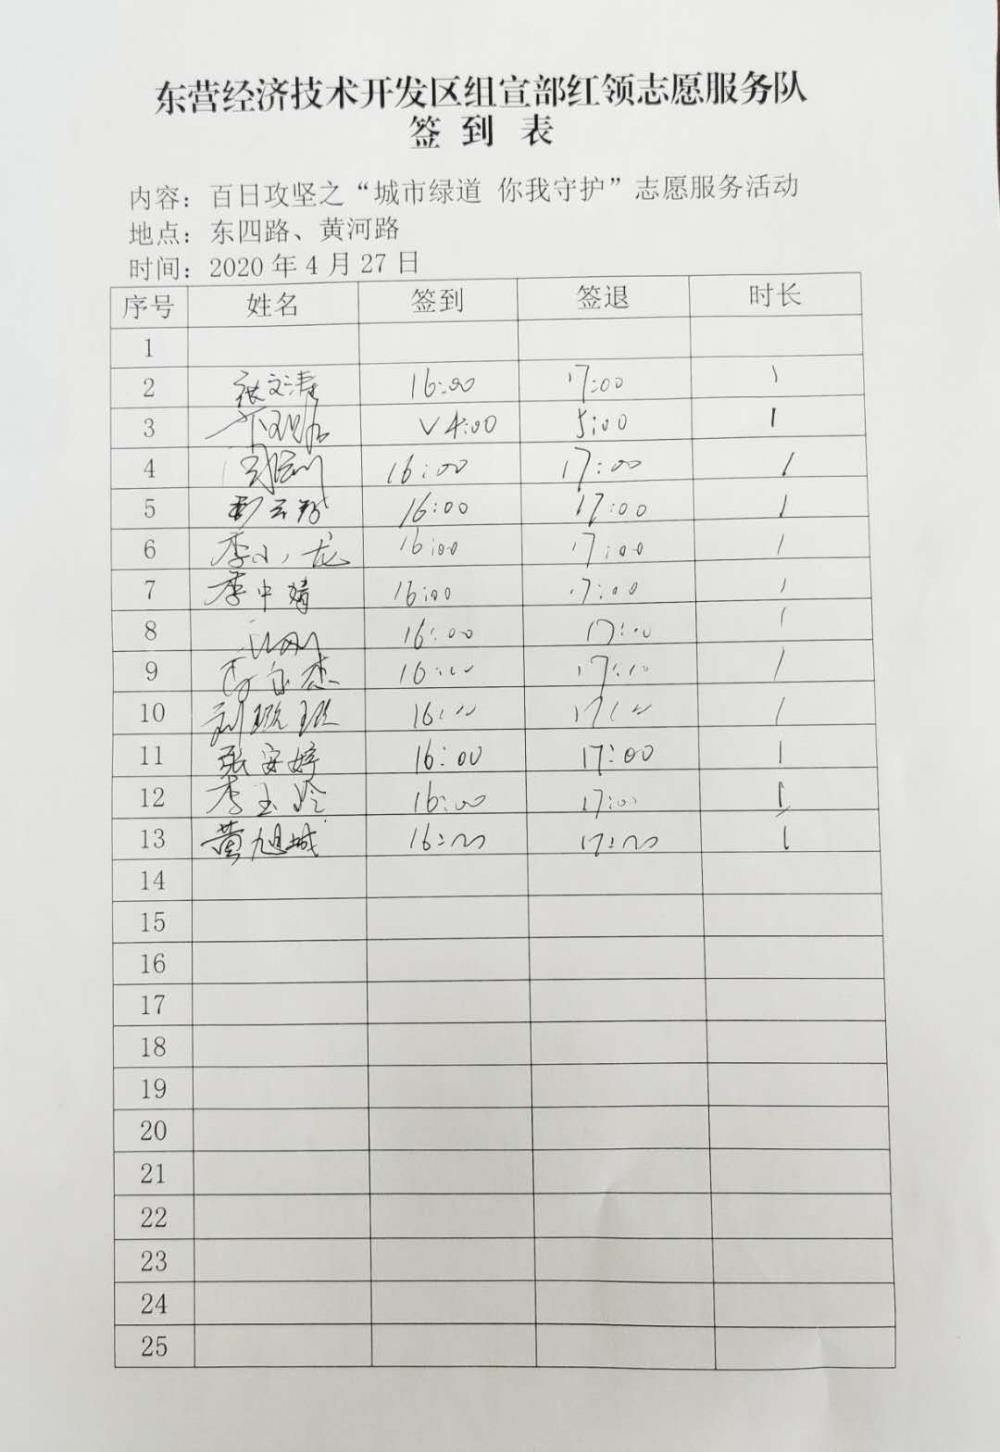 东营经济技术开发区组宣部红领志愿服务队
签到表
内容：百日攻坚之“城市绿道 你我守护”志愿服务活动
地点：东四路、黄河路
时间：2020年4月27日
序号 姓名 签到 签退 时长
1
2 张文涛 16:00 17:00 1
3 4:00 5:00 1
4 16:00 17:00 1
5 16:00 17:00 1
6 李小龙 16:00 17:00 1
7 李中婧 16:00 17:00 1
8 16:00 17:00 1
9 16:00 17:00 1
10 16:00 17:00 1
11 张安婷 16:00 17:00 1
12 李玉玲 16:00 17:00 1
13 黄旭城 16:00 17:00 1
14
15
16
17
18
19
20
21
22
23
24
25